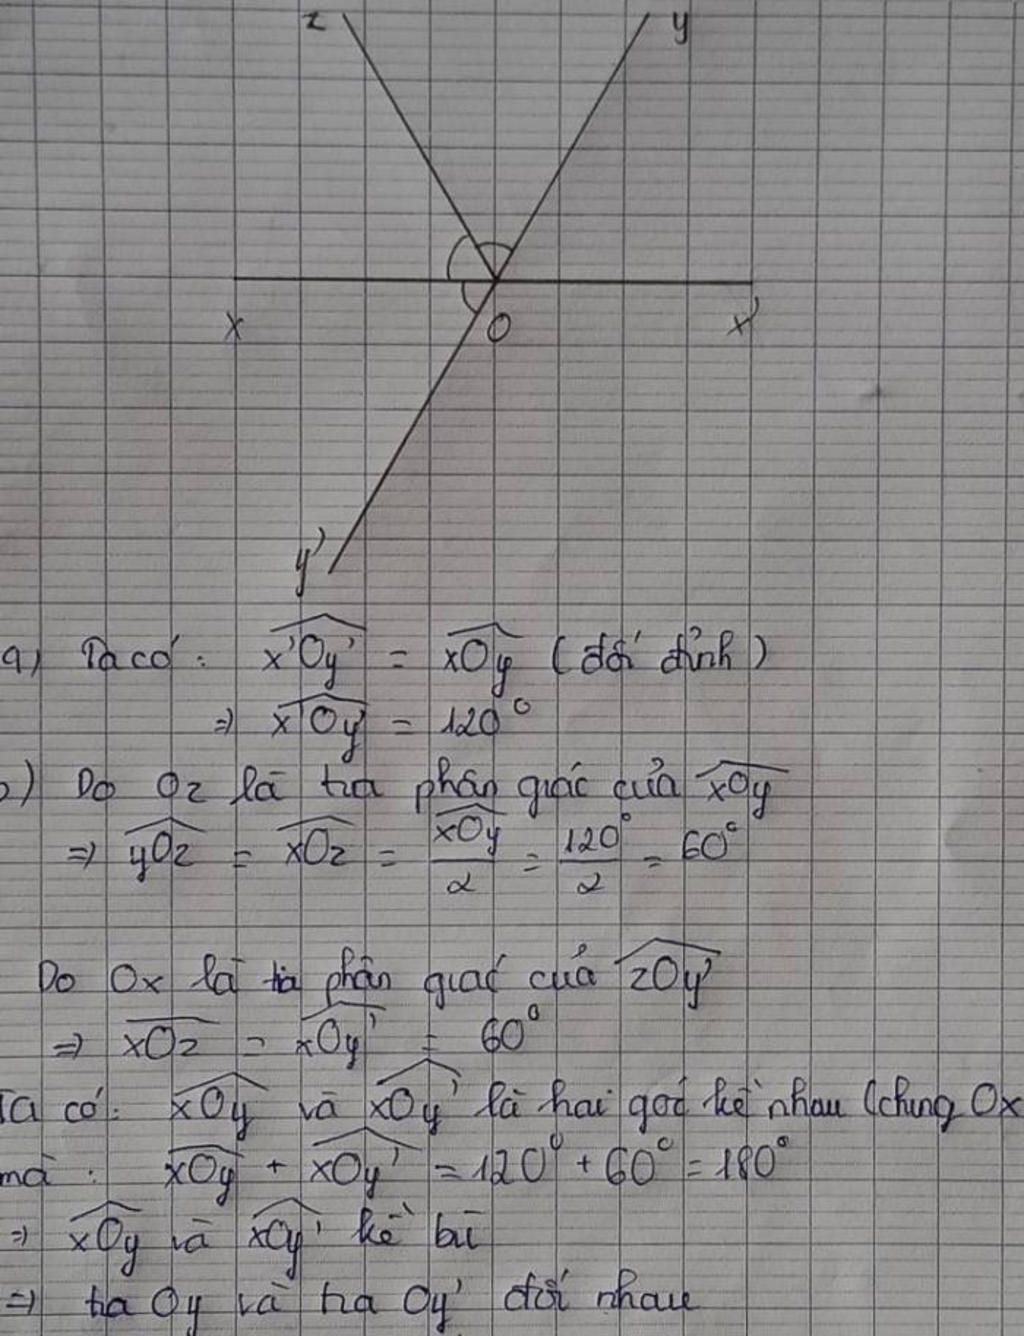 z y
x O x'
y'
a) Ta có: x'Oy' = xOy (đối đỉnh)
=> x'Oy' = 120°
b) Do Oz là tia phân giác của xOy
=> yOz = xOz = xOy/2 = 120°/2 = 60°
Do Ox là tia phân giác của zOy'
=> xOz = xOy' = 60°
Ta có: xOy và xOy' là hai góc kề nhau (chung Ox
mà: xOy + xOy' = 120° + 60° = 180°
=> xOy và xOy' kề bù
=> tia Oy và tia Oy' đối nhau